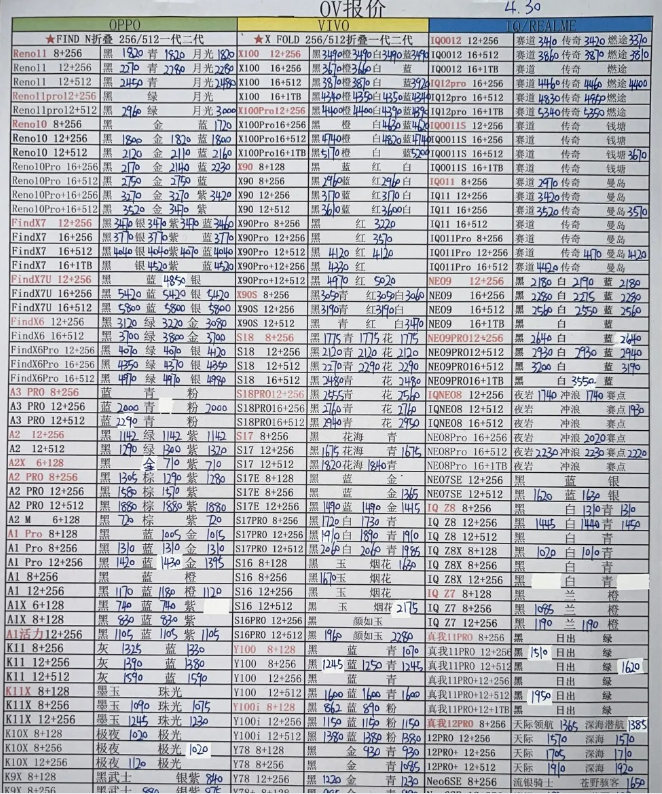 OV报价 4.30
OPPO
★FIND N折叠 256/512一代二代
Reno11 8+256 黑 1820 青 1820 月光 1820
Reno11 12+256 黑 2270 青 2280 月光 2280
Reno11 12+512 黑 2450 青 月光 2480
Reno11pro12+256 黑 绿 月光
Reno11pro12+512 黑 2960 绿 月光 3000
Reno10 8+256 黑 金 蓝 1720
Reno10 12+256 黑 1800 金 1820 蓝 1800
Reno10 12+512 黑 2120 金 2110 蓝 2160
Reno10Pro 16+256 黑 2170 金 2140 蓝 2230
Reno10Pro 16+512 黑 2750 金 2750 蓝
Reno10Pro+16+256 黑 3270 金 3270 紫 3420
Reno10Pro+16+512 黑 3520 金 3470 紫
FindX7 12+256 黑 3470 银 3470 紫 3470 蓝 3460
FindX7 16+256 黑 3770 银 3770 紫 3770 蓝
FindX7 16+512 黑 4040 银 4040 紫 4070 蓝 4040
FindX7 16+1TB 黑 银 4520 紫 4520 蓝
FindX7U 12+256 黑 蓝 4850 银
FindX7U 16+256 黑 5420 蓝 5420 银 5420
FindX7U 16+512 黑 5800 蓝 5800 银 5800
FindX6 12+256 黑 3120 绿 3220 金 3080
FindX6 16+512 黑 3700 绿 3800 金 3700
FindX6Pro 12+256 黑 4070 绿 4070 银 4120
FindX6Pro 16+256 黑 4350 绿 4370 银 4350
FindX6Pro 16+512 黑 4970 绿 4970 银 4980
A3 PRO 8+256 蓝 青 粉
A3 PRO 12+256 蓝 2000 青 粉 2000
A3 PRO 12+512 蓝 2290 青 粉
A2 12+256 黑 1142 绿 1142 紫 1142
A2 12+512 黑 1290 绿 1300 紫 1320
A2X 6+128 黑 金 710 紫 710
A2 PRO 8+256 黑 1305 棕 1290 紫 1280
A2 PRO 12+256 黑 1580 棕 1570 紫
A2 PRO 12+512 黑 1880 棕 1880 紫 1880
A2 M 6+128 黑 720 棕 720 紫
A1 Pro 8+128 黑 蓝 1005 金 1015
A1 Pro 8+256 黑 1310 蓝 1310 金 1310
A1 Pro 12+256 黑 1420 蓝 1430 金 1395
A1 8+256 黑 蓝 橙
A1 12+256 黑 1170 蓝 1180 橙 1120
A1X 6+128 黑 740 蓝 740 紫
A1X 8+128 黑 830 蓝 830 紫
A1活力12+256 黑 1105 蓝 1105 紫 1105
K11 8+256 灰 1325 蓝 1330
K11 12+256 灰 1390 蓝 1380
K11 12+512 灰 1590 蓝 1590
K11X 8+128 墨玉 珠光
K11X 8+256 墨玉 1090 珠光 1075
K11X 12+256 墨玉 1245 珠光 1230
K10X 8+128 极夜 极光
K10X 8+256 极夜 1020 极光 1020
K10X 12+256 极夜 1120 极光
K9X 8+128 黑武士 银紫 840
VIVO
★X FOLD 256/512折叠一代二代
X100 12+256 黑 3490 橙 3490 白 3490 蓝 3490
X100 16+256 黑 3670 橙 3660 白 蓝
X100 16+512 黑 3870 橙 3870 白 蓝 3920
X100 16+1TB 黑 4340 橙 4350 白 4350 蓝 4340
X100Pro12+256 黑 4400 橙 4400 白 4390 蓝
X100Pro16+256 黑 橙 白 4630 蓝 4620
X100Pro16+512 黑 4740 橙 白 4820 蓝 4740
X100Pro16+1TB 黑 5170 橙 白 蓝 5200
X90 8+128 黑 蓝 红 白
X90 8+256 黑 2960 蓝 红 2960 白
X90 12+256 黑 3170 蓝 红 3170 白
X90 12+512 黑 3610 蓝 红 3600 白
X90Pro 8+256 黑 红 3220
X90Pro 12+256 黑 红 3570
X90Pro 12+512 黑 4120 红 4120
X90Pro+12+256 黑 4330 红
X90Pro+12+512 黑 4970 红 5020
X90S 8+256 黑 3050 青 红 3050 白 3060
X90S 12+256 黑 3190 青 红 3190 白
X90S 12+512 黑 青 红 白 3470
S18 8+256 黑 1775 青 1775 花 1775
S18 12+256 黑 2120 青 2120 花 2120
S18 12+512 黑 2270 青 2290 花 2290
S18 16+512 黑 2480 青 花 2480
S18PRO12+256 黑 2555 青 花 2560
S18PRO16+256 黑 2760 青 花 2760
S18PRO16+512 黑 2940 青 花 2950
S17 8+256 黑 花海 青
S17 12+256 黑 1675 花海 青 1675
S17 12+512 黑 1820 花海 1840 青
S17E 8+128 黑 蓝 金
S17E 8+256 黑 蓝 金 1365
S17E 12+256 黑 1490 蓝 1490 金 1415
S17PRO 8+256 黑 1720 白 1730 青
S17PRO 12+256 黑 1910 白 1890 青 1910
S17PRO 12+512 黑 2060 白 2060 青 1985
S16 8+128 黑 玉 烟花 1630
S16 8+256 黑 1670 玉 烟花
S16 12+256 黑 玉 烟花
S16 12+512 黑 玉 烟花 2175
S16PRO 12+256 黑 颜如玉
S16PRO 12+512 黑 1960 颜如玉 2280
Y100 8+128 黑 蓝 青 1070
Y100 8+256 黑 1245 蓝 1250 青 1245
Y100 12+256 黑 蓝 青
Y100 12+512 黑 1600 蓝 1600 青 1600
Y100i 8+128 黑 862 蓝 890 粉
Y100i 12+256 黑 1150 蓝 1150 粉 1150
Y100i 12+512 黑 1380 蓝 1380 粉 1380
Y78 8+128 黑 金 930 青 930
Y78 8+256 黑 金 青 1085
Y78 12+256 黑 1220 金 青 1230
IQ/REALME
IQOO12 12+256 赛道 3410 传奇 3420 燃途 3370
IQOO12 16+512 赛道 3860 传奇 3870 燃途 3810
IQOO12 16+1TB 赛道 传奇 燃途
IQ12pro 16+256 赛道 4460 传奇 4460 燃途 4400
IQ12pro 16+512 赛道 4830 传奇 4850 燃途
IQ12pro 16+1TB 赛道 5340 传奇 5350 燃途
IQOO11S 12+256 赛道 传奇 钱塘
IQOO11S 16+256 赛道 传奇 钱塘
IQOO11S 16+512 赛道 传奇 钱塘 3670
IQOO11S 16+1TB 赛道 传奇 钱塘
IQ011 8+256 赛道 2970 传奇 曼岛
IQ11 12+256 赛道 3420 传奇 曼岛
IQ11 16+256 赛道 3520 传奇 曼岛 3570
IQ11 16+512 赛道 传奇 曼岛
IQO11Pro 8+256 赛道 传奇 曼岛
IQO11Pro 16+256 赛道 传奇 4170 曼岛 4120
IQO11Pro 16+512 赛道 4420 传奇 曼岛
NEO9 12+256 黑 2180 白 2190 蓝 2180
NEO9 16+256 黑 2280 白 2275 蓝 2280
NEO9 16+512 黑 2560 白 2550 蓝 2560
NEO9 16+1TB 黑 白 蓝
NEO9PRO12+256 黑 2640 白 蓝 2640
NEO9PRO12+512 黑 2930 白 2930 蓝 2940
NEO9PRO16+512 黑 3200 白 蓝 3190
NEO9PRO16+1TB 黑 白 3550 蓝
IQNEO8 12+256 夜岩 1740 冲浪 1740 赛点
IQNEO8 12+512 夜岩 冲浪 赛点 1930
IQNEO8 16+512 夜岩 冲浪 赛点
NEO8Pro 16+256 夜岩 冲浪 2020 赛点
NEO8Pro 16+512 夜岩 2230 冲浪 2230 赛点 2220
NEO8Pro 16+1TB 夜岩 冲浪 赛点
NEO7SE 12+256 黑 蓝 银
NEO7SE 12+512 黑 1620 蓝 1630 银
IQ Z8 8+256 黑 白 1310 青 1310
IQ Z8 12+256 黑 1445 白 1440 青 1450
IQ Z8 12+512 黑 白 青
IQ Z8X 8+128 黑 1020 白 1010 青
IQ Z8X 12+256 黑 白 青
IQ Z7 8+128 黑 兰 橙
IQ Z7 8+256 黑 1085 兰 橙
IQ Z7 12+256 黑 1190 兰 1190 橙
真我11PRO 8+256 黑 日出 绿
真我11PRO 12+256 黑 1510 日出 绿
真我11PRO 12+512 黑 日出 绿 1620
真我11PRO+12+256 黑 日出 绿
真我11PRO+12+512 黑 1950 日出 绿
真我11PRO+12+1TB 黑 日出 绿
真我12PRO 8+256 天际领航 1365 深海潜航 1385
12PRO 12+256 天际 1570 深海 1570
12PRO+ 12+256 天际 1705 深海 1710
12PRO+ 12+512 天际 1910 深海 1920
Neo6SE 8+256 流银骑士 苍野骇客 1650